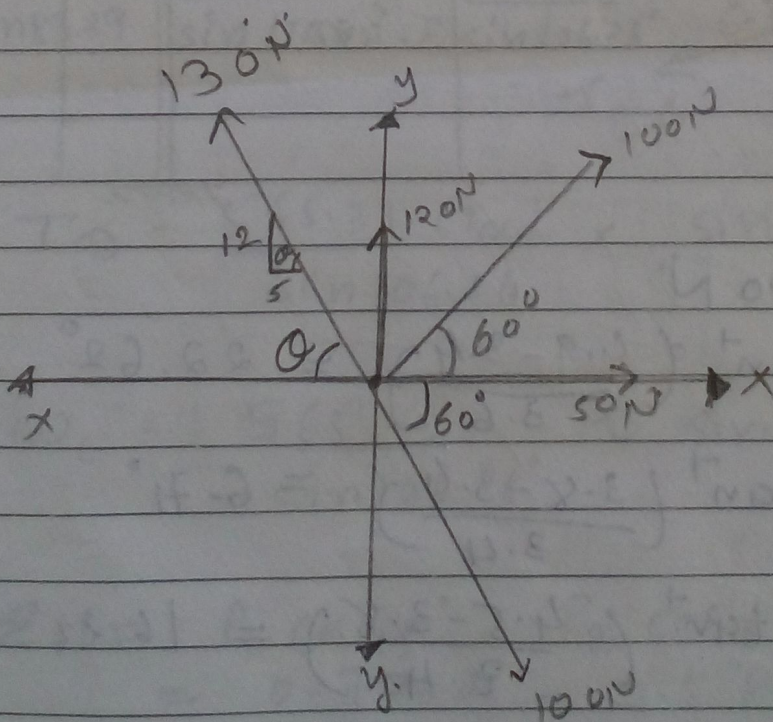 130N
y
100N
120N
12
5
θ
60°
x
60°
50N
x
y.
100N